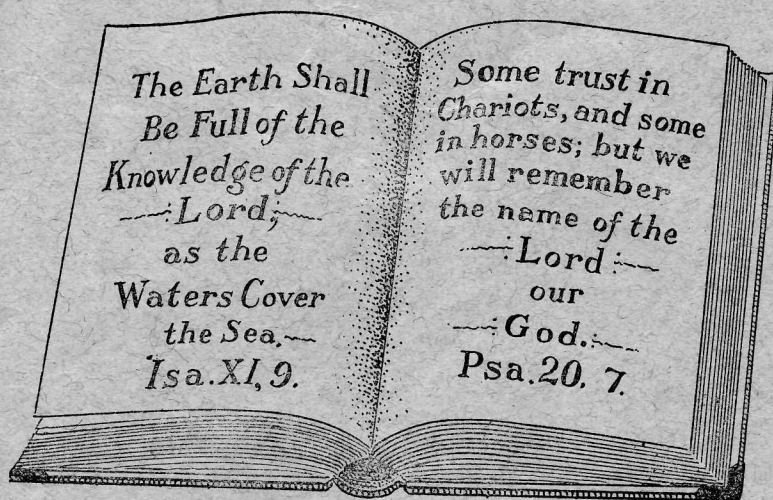 The Earth Shall
Be Full of the
Knowledge of the
Lord,
as the
Waters Cover
the Sea.
Isa. XI, 9.
Some trust in
Chariots, and some
in horses; but we
will remember
the name of the
Lord
our
God.
Psa. 20. 7.